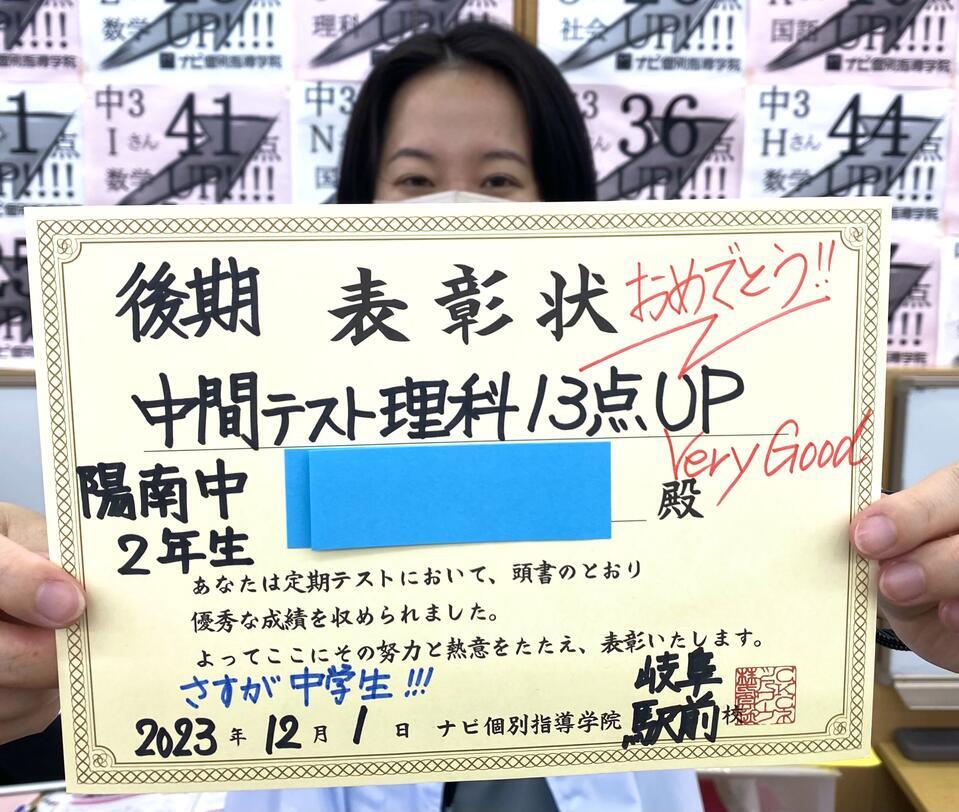 数学
UP!!!!
理科
UP!!!!
ナビ個別指導学院
社会
UP!!!!
国語
UP!!!!
ナビ個別指導学院
中3
Iさん
41
点
数学
UP!!!!
中3
N
36
点
UP!!!!
中3
Hさん
44
点
数学
UP!!!!
後期 表彰状
おめでとう!!
中間テスト理科13点UP
Very Good
陽南中
2年生
殿
あなたは定期テストにおいて、頭書のとおり
優秀な成績を収められました。
よってここにその努力と熱意をたたえ、表彰いたします。
さすが中学生!!!
2023年12月1日 ナビ個別指導学院 岐阜駅前校